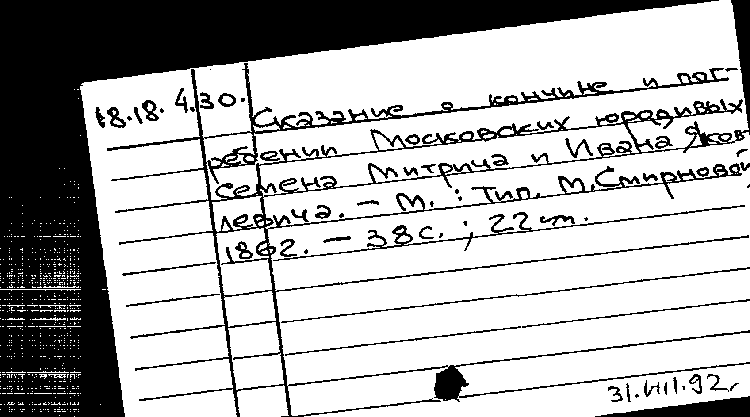 18.18.4.30.
Сказание о кончине и пог-
ребении Московских юродивых
Семена Митрича и Ивана Яков-
левича. — М. : Тип. М. Смирновой
1862. — 38 с. ; 22 см.
31.VIII.92.